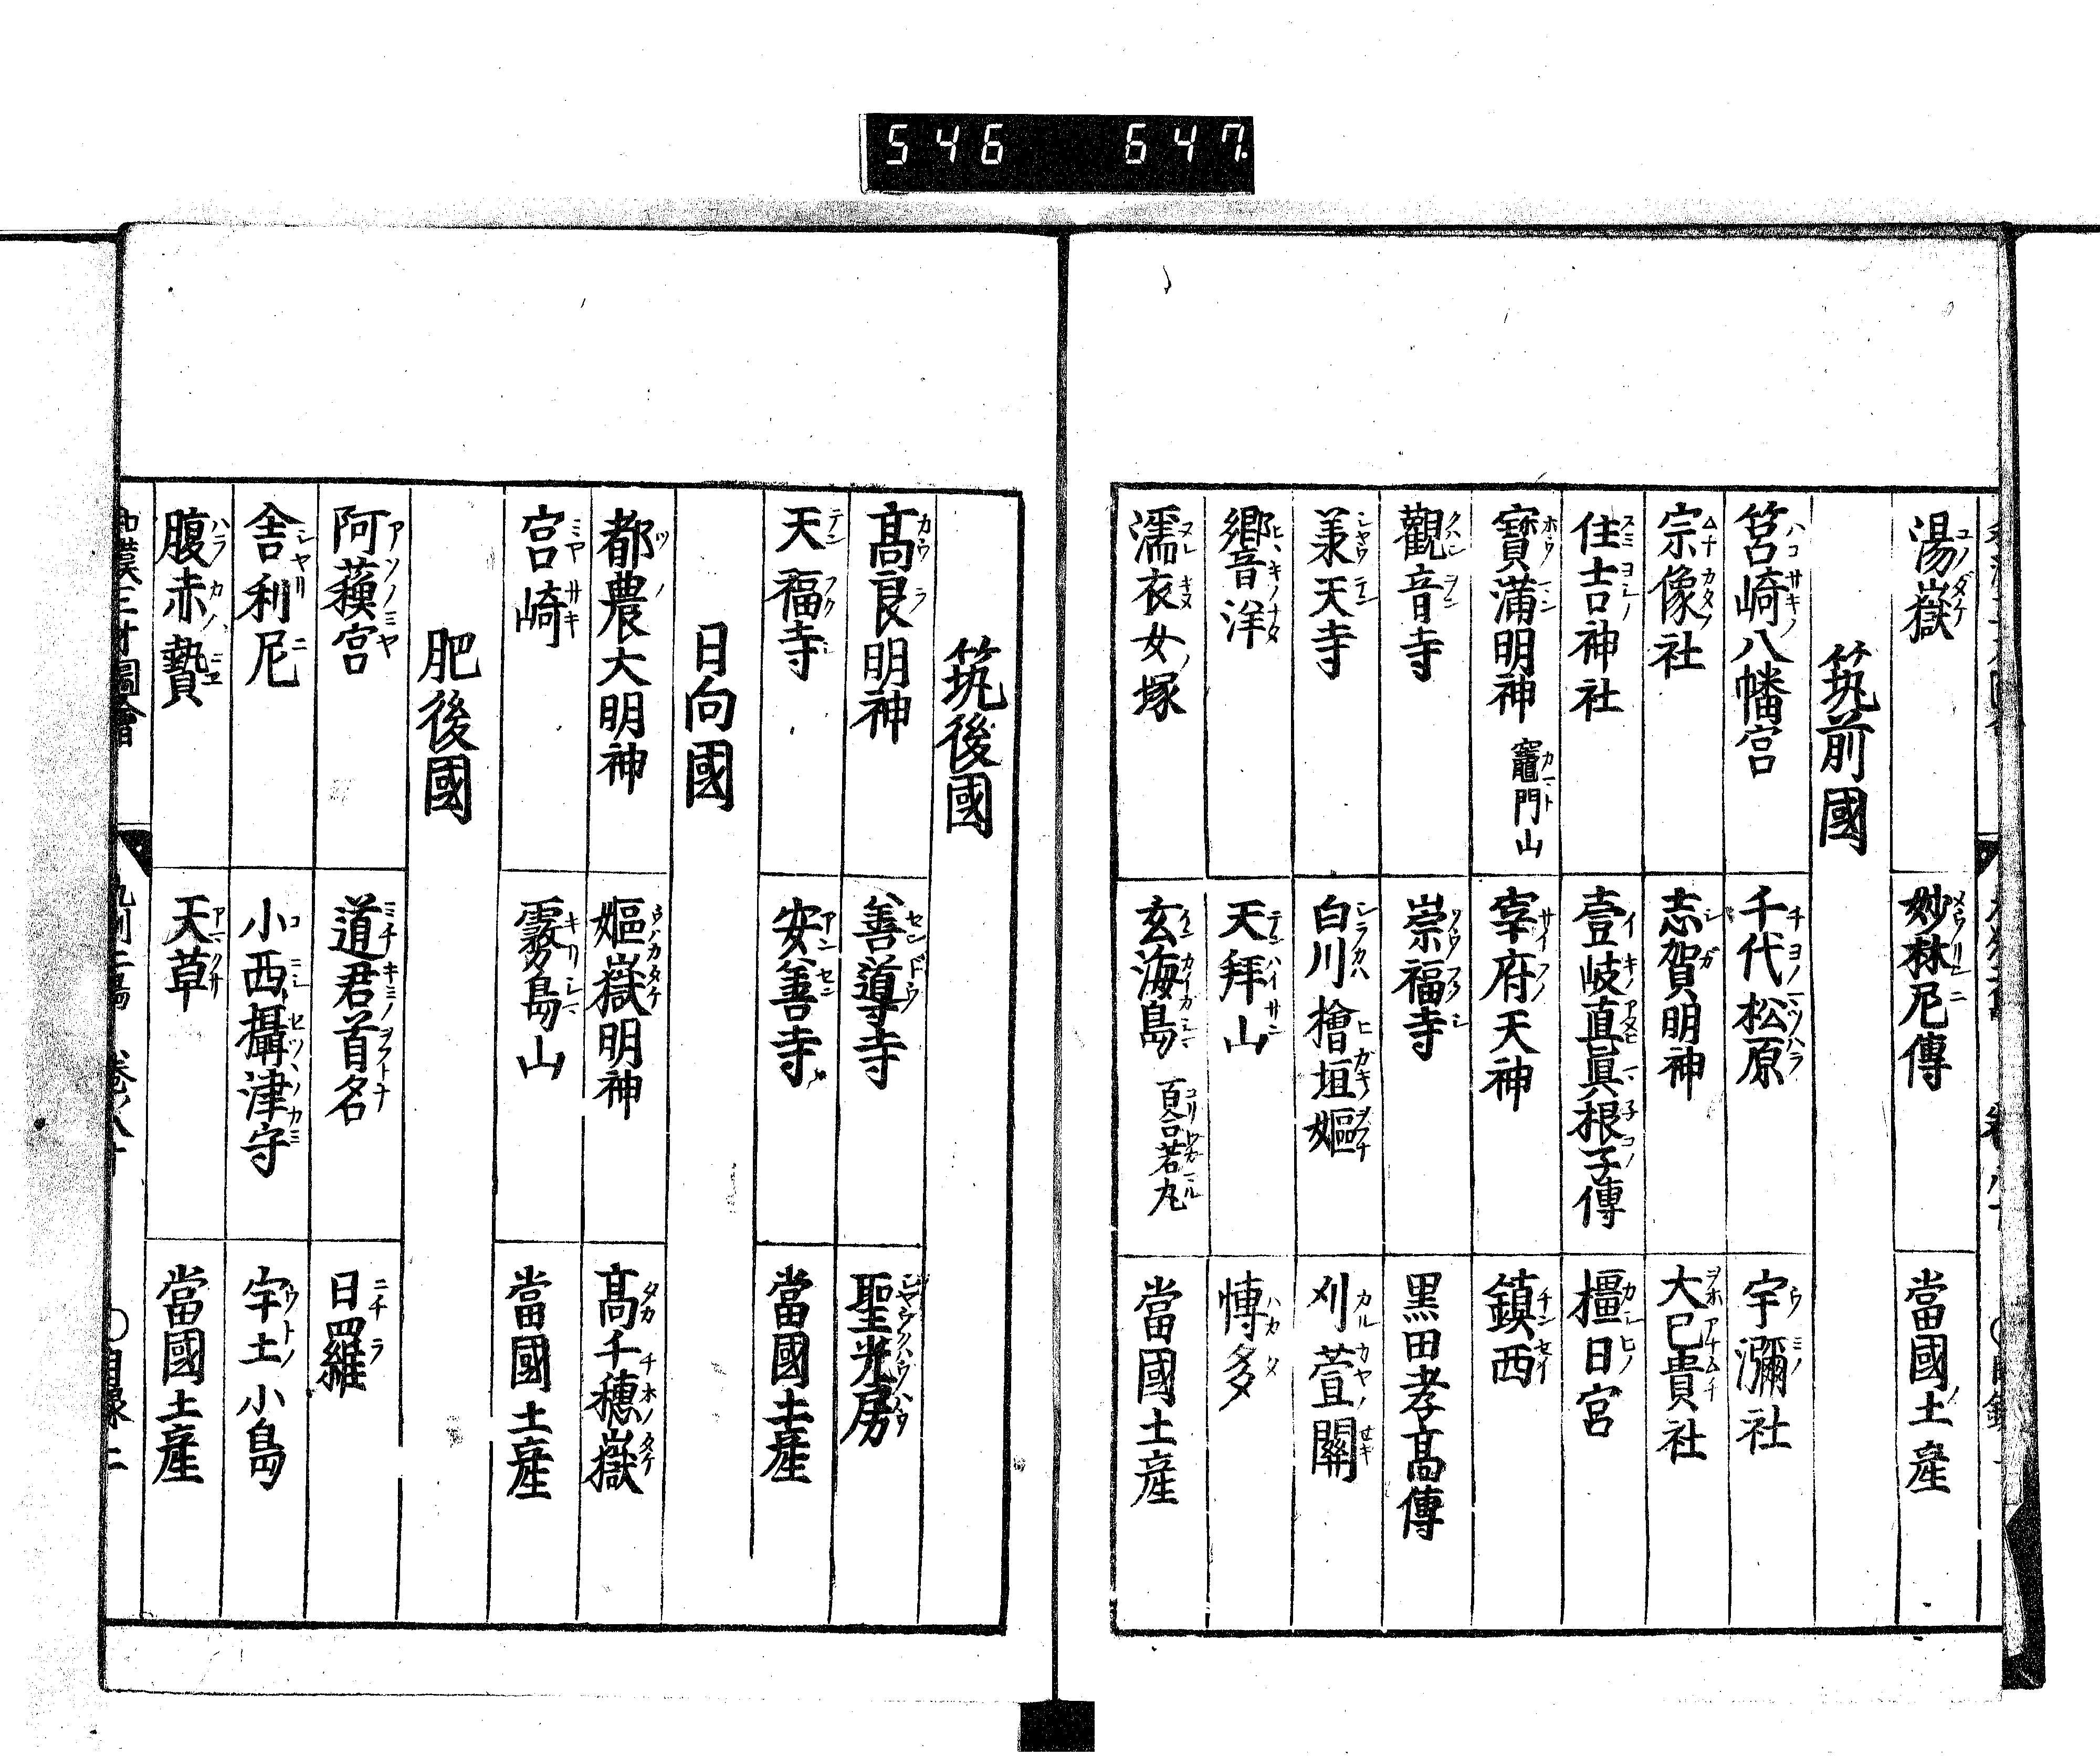 546 647
湯嶽 妙林尼傳 當國土產
筑前國
筥崎八幡宮 千代松原 宇瀰社
宗像社 志賀明神 大已貴社
住吉神社 壹岐直眞根子傳 橿日宮
寶滿明神 竈門山 宰府天神 鎮西
觀音寺 崇福寺 黒田孝髙傳
羕天寺 白川 檜垣嫗 刈萱關
響洋 天拜山 愽多
濡衣女塚 玄海島 百合若丸 當國土產
筑後國
髙良明神 善導寺 聖光房
天福寺 安善寺 當國土產
日向國
都農大明神 嫗嶽明神 髙千穗嶽
宮崎 霧島山 當國土產
肥後國
阿蘓宮 道君首名 日羅
舎利尼 小西攝津守 宇土小島
腹赤贄 天草 當國土產